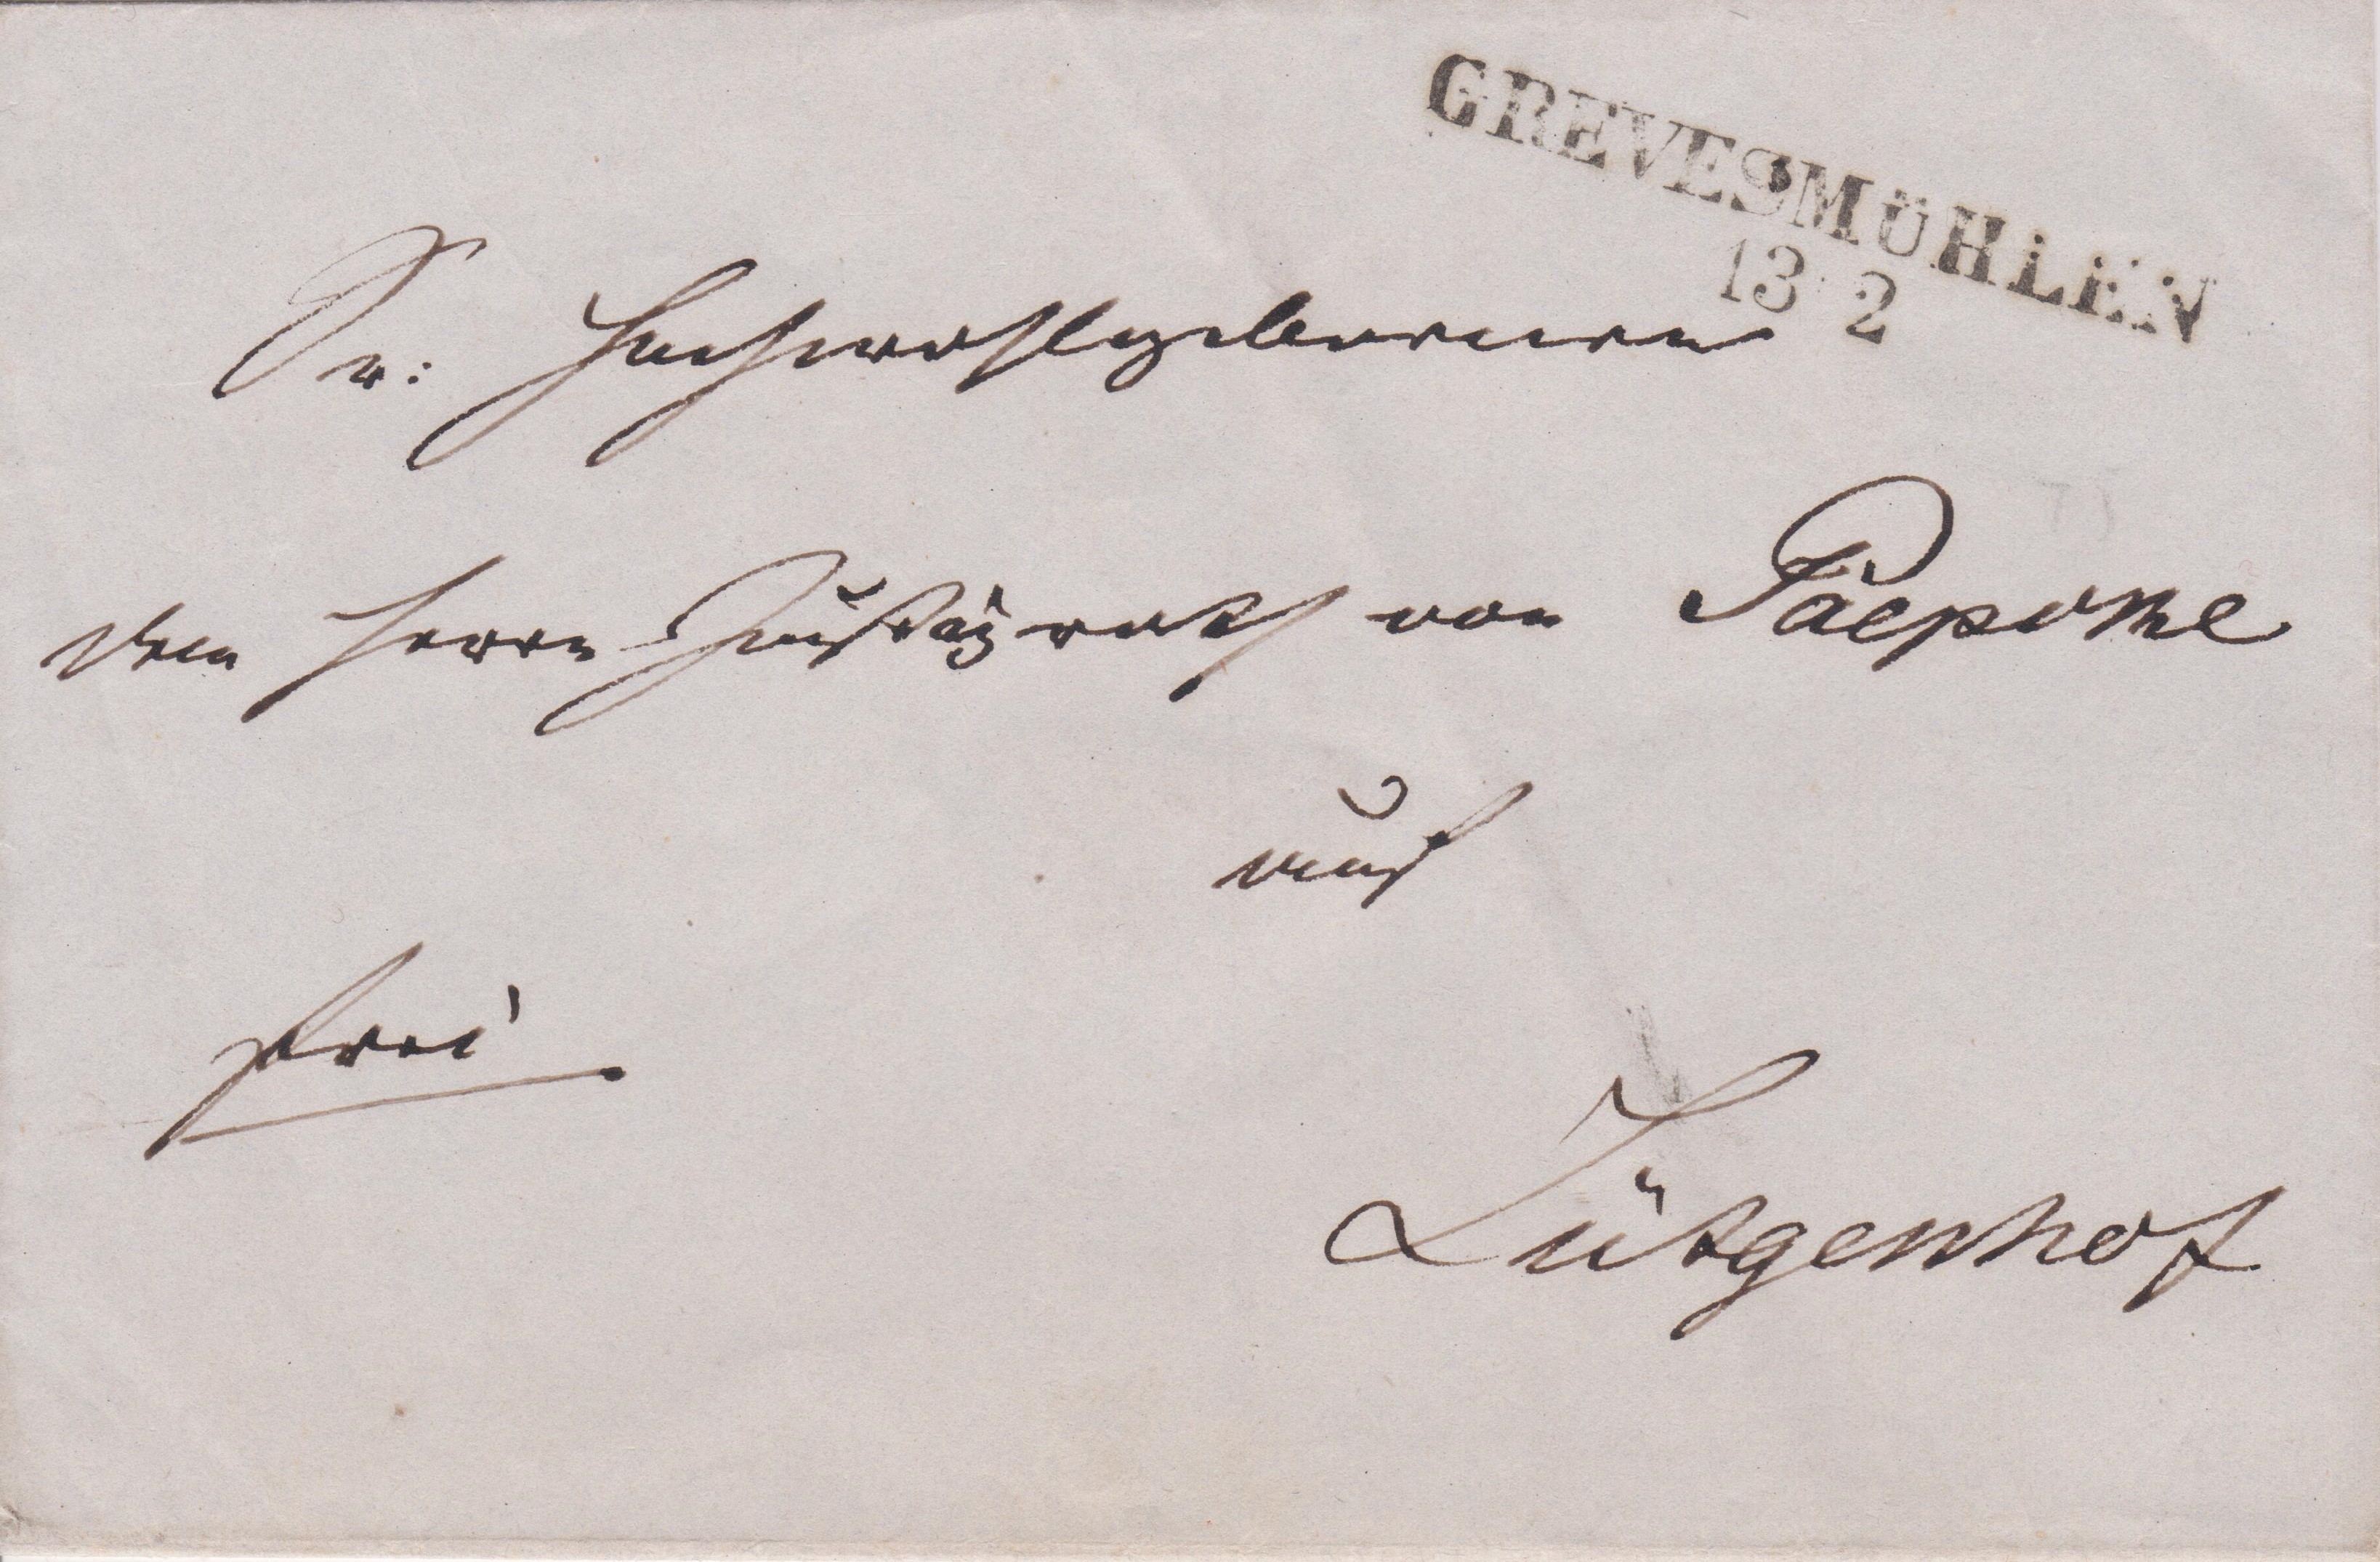 GREVESMÜHLEN
13 2
Sr: Hochwohlgeboren
dem Herrn Justizrath von Paepcke
auf
frei
Lütgenhof